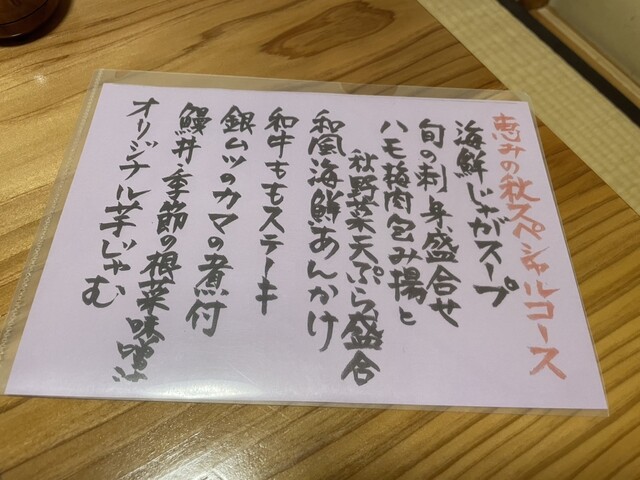 恵みの秋スペシャルコース
海鮮じゃがスープ
旬の刺身盛合せ
ハモ梅肉包み揚と
秋野菜天ぷら盛合
和風海鮮あんかけ
和牛ももステーキ
銀ムツのカマの煮付
鰻丼季節の根菜味噌汁
オリジナル芋じゃむ